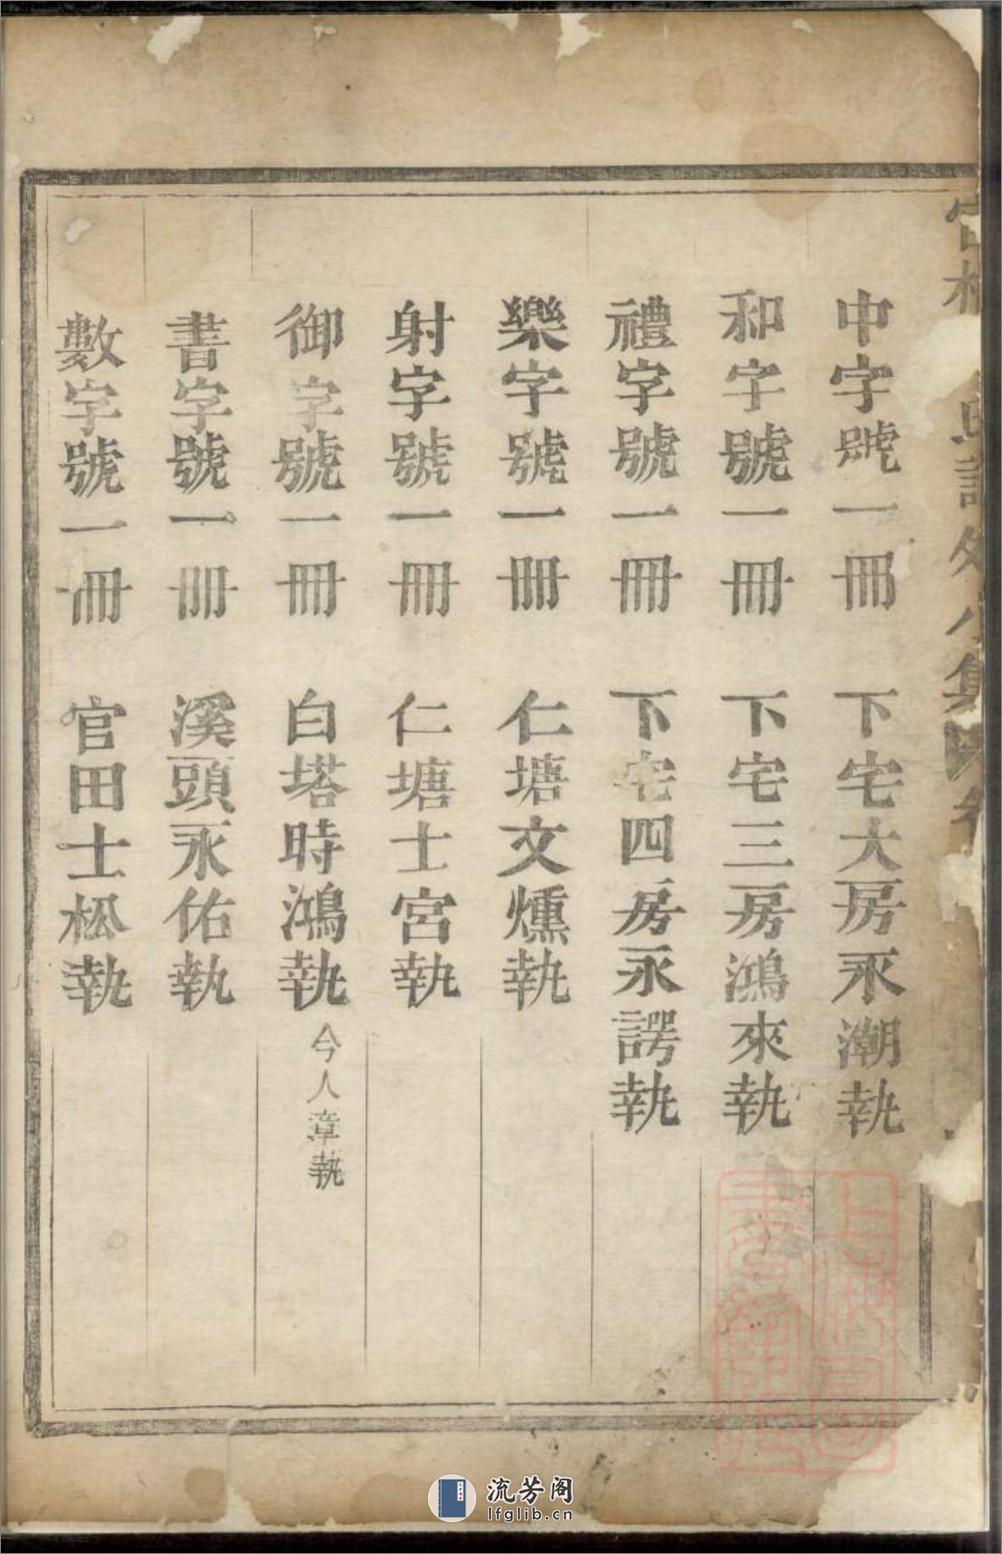 中字號一冊 下宅大房永潮執
和字號一冊 下宅三房鴻來執
禮字號一冊 下宅四房永諤執
樂字號一冊 仁塘文燻執
射字號一冊 仁塘士宮執
御字號一冊 白塔時鴻執 今人章執
書字號一冊 溪頭永佑執
數字號一冊 官田士松執
流芳阁
lfglib.cn